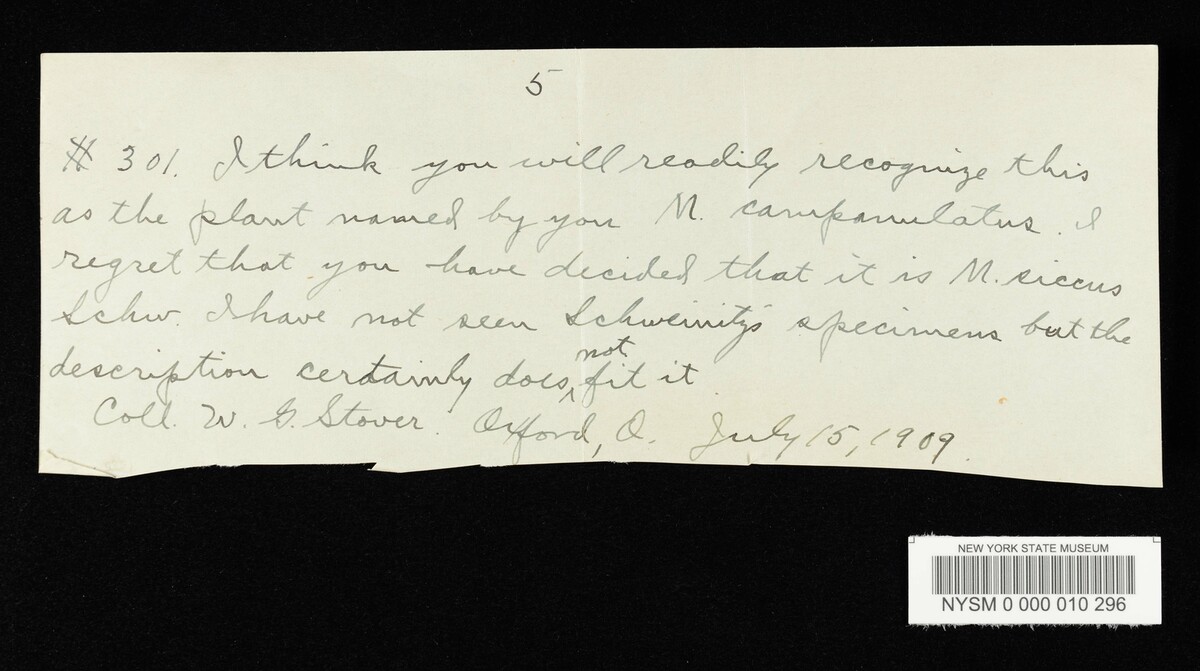 5
# 301. I think you will readily recognize this
as the plant named by you M. campanulatus. I
regret that you have decided that it is M. siccus
Schw. I have not seen Schweinitz's specimens but the
not
description certainly does ^ fit it
Coll. W. G. Stover. Oxford, O. July 15, 1909.
NEW YORK STATE MUSEUM
NYSM 0 000 010 296